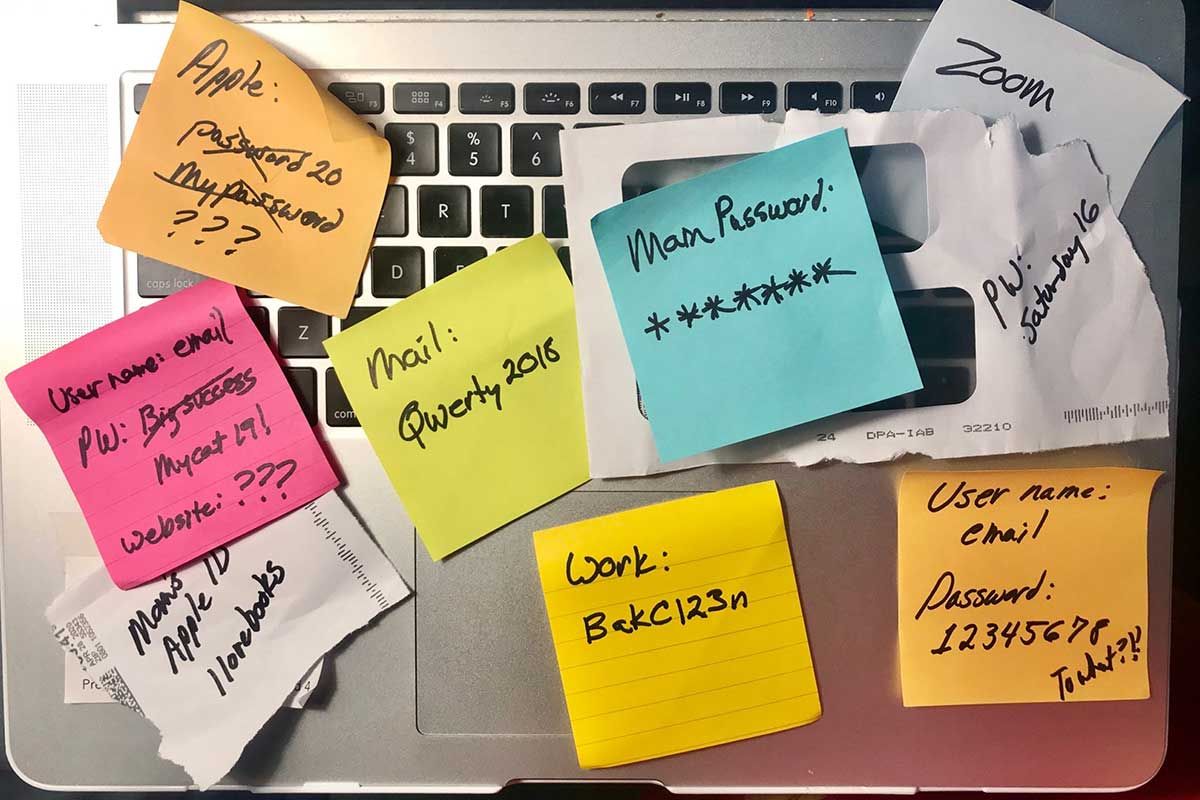 Apple:
password 20
my password
???
Zoom
PW:
Saturday 16
Main Password:
*******
User name: email
PW: Big success
Mycat 191
website: ???
Mail:
Qwerty 2018
24 DPA-IAB 32210
Mom's
Apple ID
Ilovebooks
Work:
BakC123n
User name:
email
Password:
12345678
To what?!!
F3
F4
F5
F6
F7
F8
F9
F10
$
4
%
5
^
6
R
T
D
caps lock
Z
com